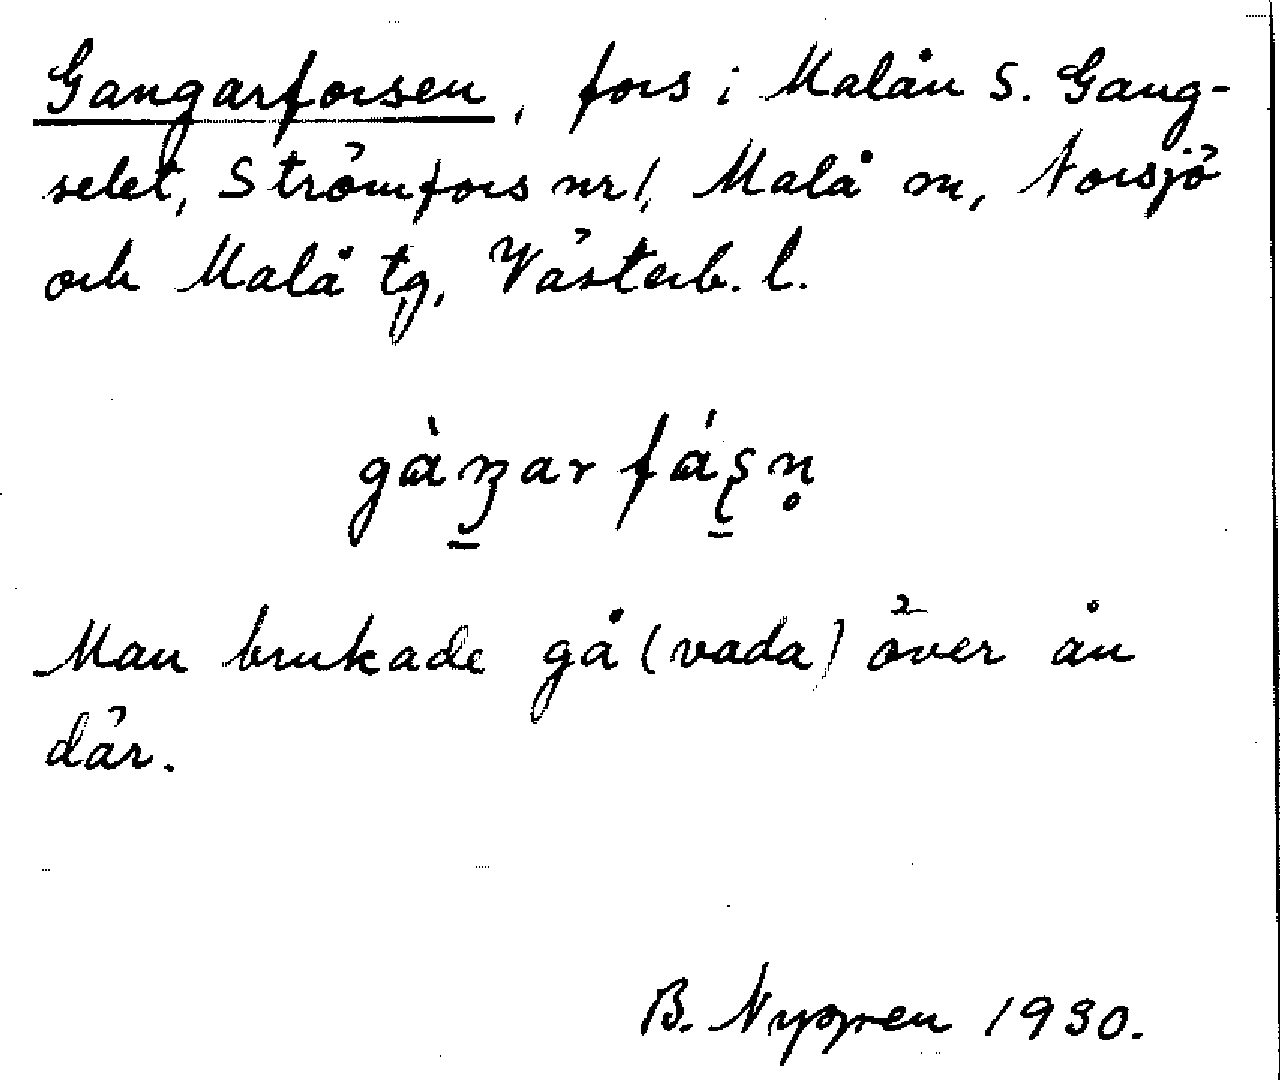 Gangarforsen, fors i Malån S. Gang-
selet, Strömfors nr 1, Malå sn, Norsjö
och Malå tg, Västerb. l.
gàŋ̱ar fáʂ̱n̥
Man brukade gå (vada) över ån
där.
B. Nygren 1930.